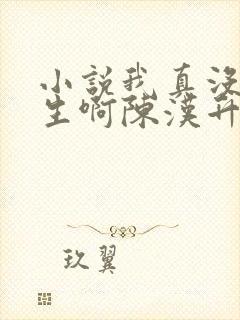 小説我真没
生啊陳漢升
玖翼